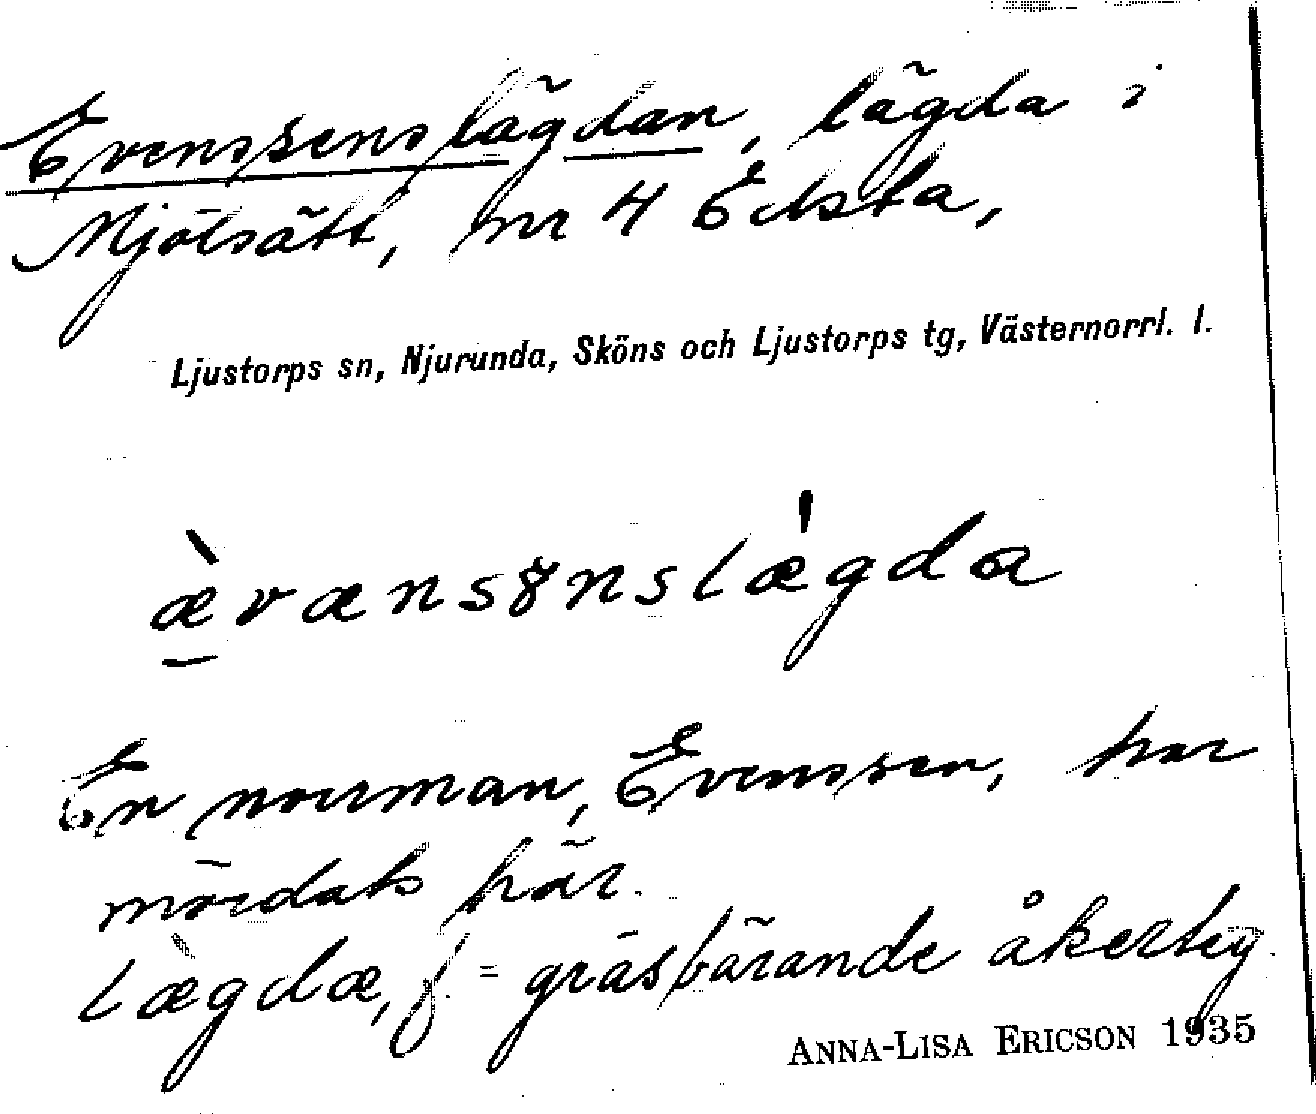 Evenssenslägdan, lägda i
Mjölsätt, nr 4 Edsta,
Ljustorps sn, Njurunda, Sköns och Ljustorps tg, Västernorrl. l.
æ̀vænsɣnslǽgda
En norrman, Evenssen, har
mördats här.
læ̀gdæ, f. = gräsbärande åkerteg.
ANNA-LISA ERICSON 1935